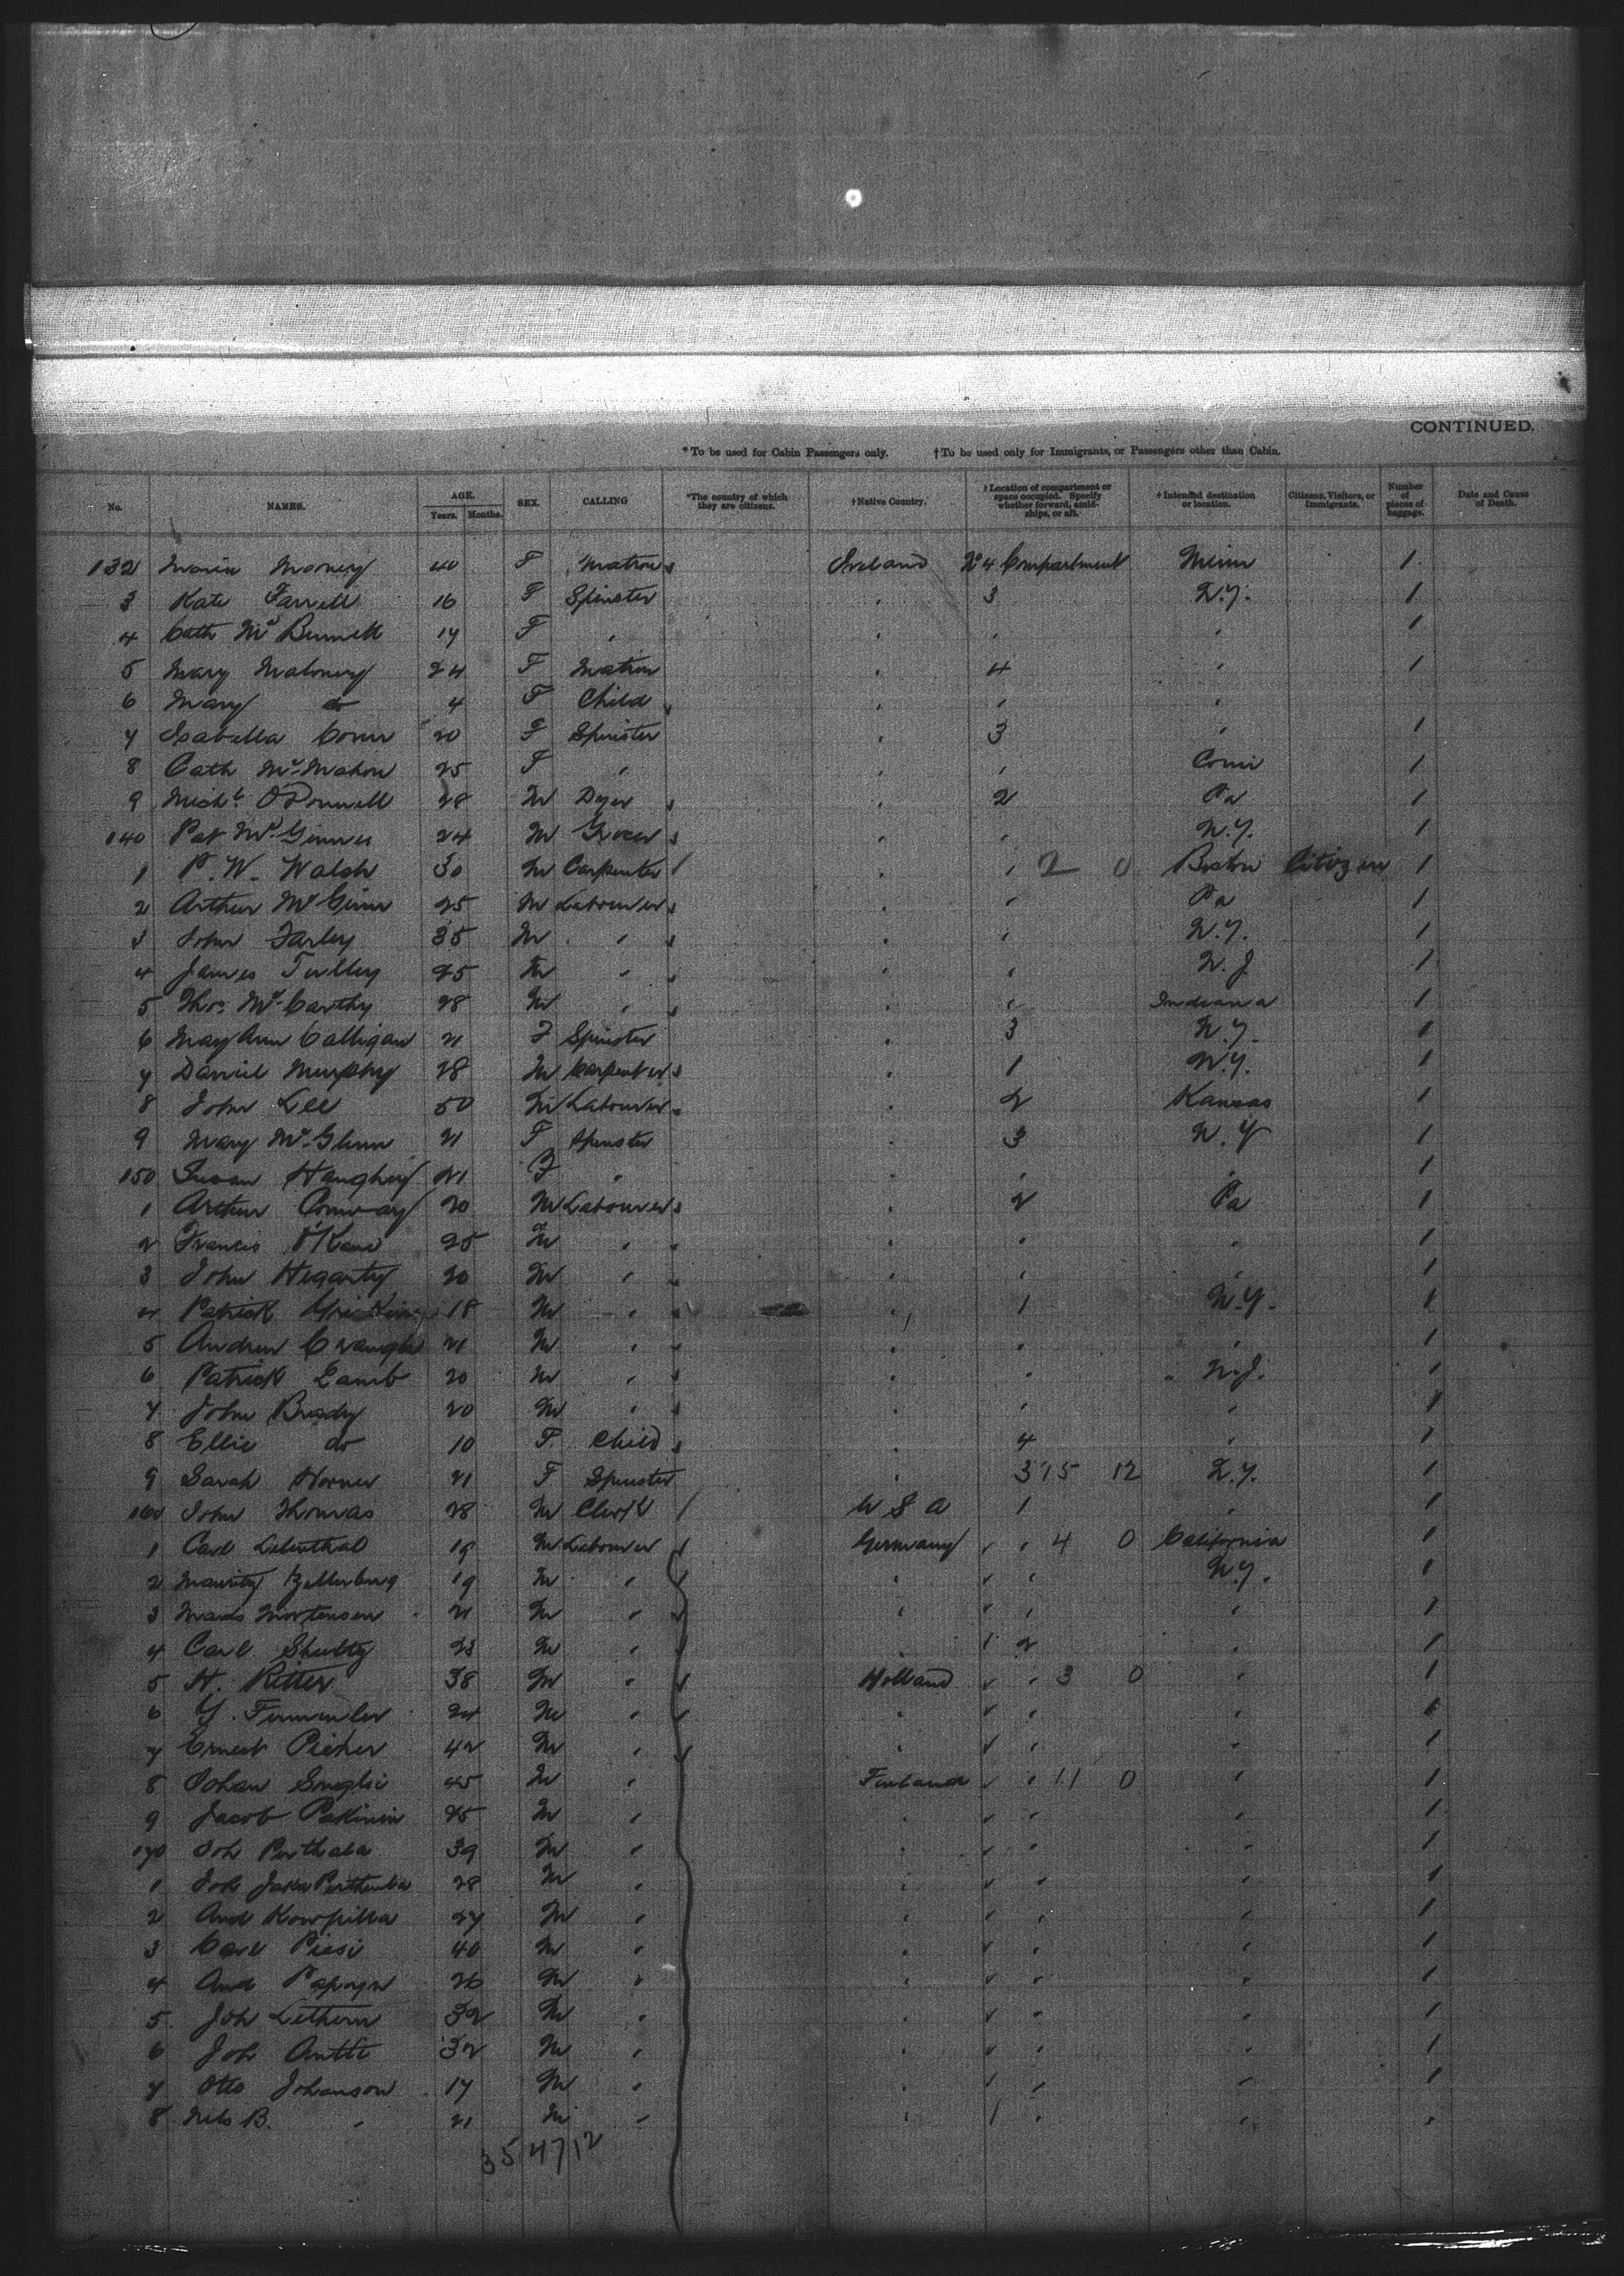 CONTINUED.
* To be used for Cabin Passengers only. † To be used only for Immigrants, or Passengers other than Cabin.
No. NAMES. AGE. Years. Months. SEX. CALLING *The country of which they are citizens. †Native Country. †Location of compartment or space occupied. Specify whether forward, amidships, or aft. †Intended destination or location. Citizens, Visitors, or Immigrants. Number of pieces of baggage. Date and Cause of Death.
132 Maria Mooney 40 F Matron Ireland No 4 Compartment Minn 1
3 Kate Farrell 16 F Spinster " 3 N.Y. 1
4 Cath 17 F " " " " 1
5 Mary Maloney 24 F Matron " 4 " 1
6 Mary do 4 F Child " " "
7 Isabella 20 F Spinster " 3 " 1
8 Cath McMahon 25 F " " " Conn 1
9 Michl O'Donnell 28 M Dyer " 2 Pa 1
140 Pat McGinnes 24 M Grocer " " N.Y. 1
1 P. W. Walsh 30 M Carpenter " " 2 0 Boston Citizen 1
2 Arthur McGinn 25 M Labourer " " Pa 1
3 John Farley 35 M " " " N.Y. 1
4 James Tulley 25 M " " " N.J. 1
5 Thos McCarthy 28 M " " " Indiana 1
6 Mary Ann Calligan 21 F Spinster " 3 N.Y. 1
7 Daniel Murphy 28 M Carpenter " 1 N.Y. 1
8 John Lee 50 M Labourer " 2 Kansas 1
9 Mary McGlinn 21 F Spinster " 3 N.Y 1
150 Susan Haughey 21 F " " " " 1
1 Arthur Conway 20 M Labourer " 2 Pa 1
2 Francis O'Kane 25 M " " " " 1
3 John Hegarty 20 M " " " " 1
4 Patrick 18 M " " 1 N.Y. 1
5 Andrew 21 M " " " " 1
6 Patrick Lamb 20 M " " " N.J. 1
7 John Brady 20 M " " " " 1
8 Ellie do 10 F Child " 4 " 1
9 Sarah Horner 21 F Spinster " 3 15 12 N.Y. 1
160 John Thomas 28 M Clerk U S A 1 " 1
1 Carl Lilienthal 19 M Labourer Germany " 4 0 California 1
2 19 M " " " N.Y. 1
3 Mads Mortensen 21 M " " " " 1
4 Carl Shultz 23 M " " 2 " 1
5 H. Ritter 38 M " Holland " 3 0 " 1
6 Y. 24 M " " " " 1
7 Ernest 42 M " " " " 1
8 Johan 45 M " Finland " 11 0 " 1
9 Jacob Pakinin 25 M " " " " 1
170 Joh Perthala 39 M " " " " 1
1 Joh 28 M " " " " 1
2 And 27 M " " " " 1
3 Carl Piesi 40 M " " " " 1
4 And 26 M " " " " 1
5 Joh 32 M " " " " 1
6 Joh Antti 32 M " " " " 1
7 Otto Johanson 17 M " " " " 1
8 Nels B. " 21 M " " " " "
35 47 12